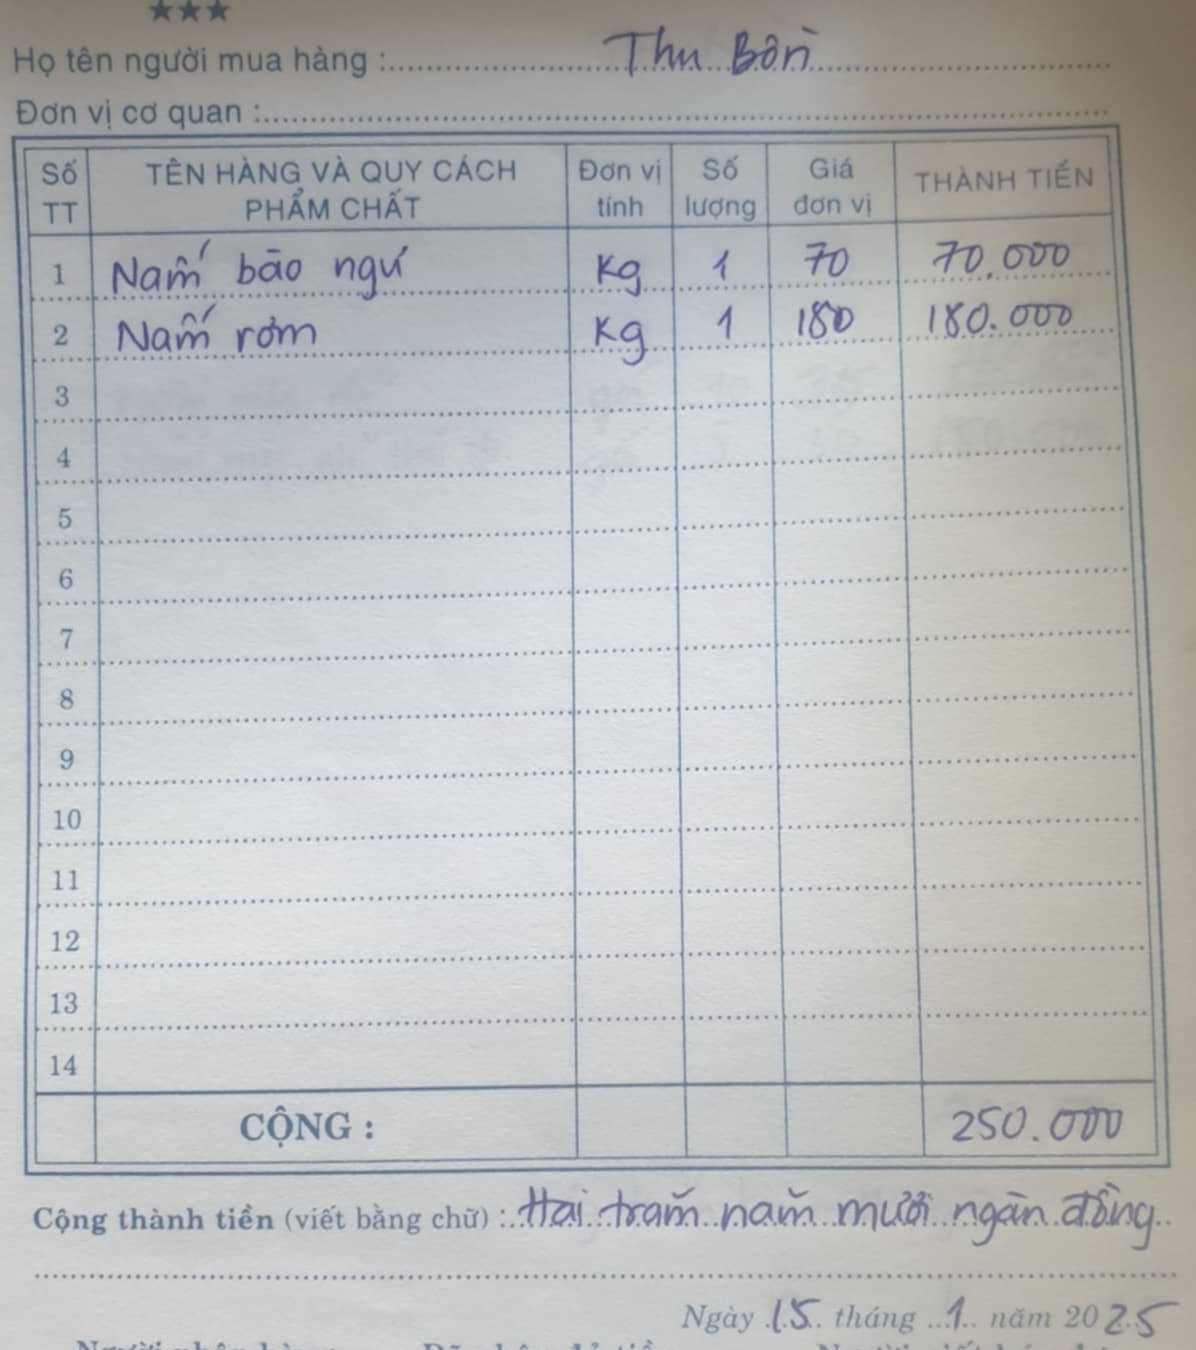 ★★★
Họ tên người mua hàng : Thu Bồn
Đơn vị cơ quan :
Số TT TÊN HÀNG VÀ QUY CÁCH PHẨM CHẤT Đơn vị tính Số lượng Giá đơn vị THÀNH TIỀN
1 Nấm bào ngư Kg 1 70 70.000
2 Nấm rơm Kg 1 180 180.000
3
4
5
6
7
8
9
10
11
12
13
14
CỘNG : 250.000
Cộng thành tiền (viết bằng chữ) : Hai trăm năm mươi ngàn đồng
Ngày 15 tháng 1 năm 2025